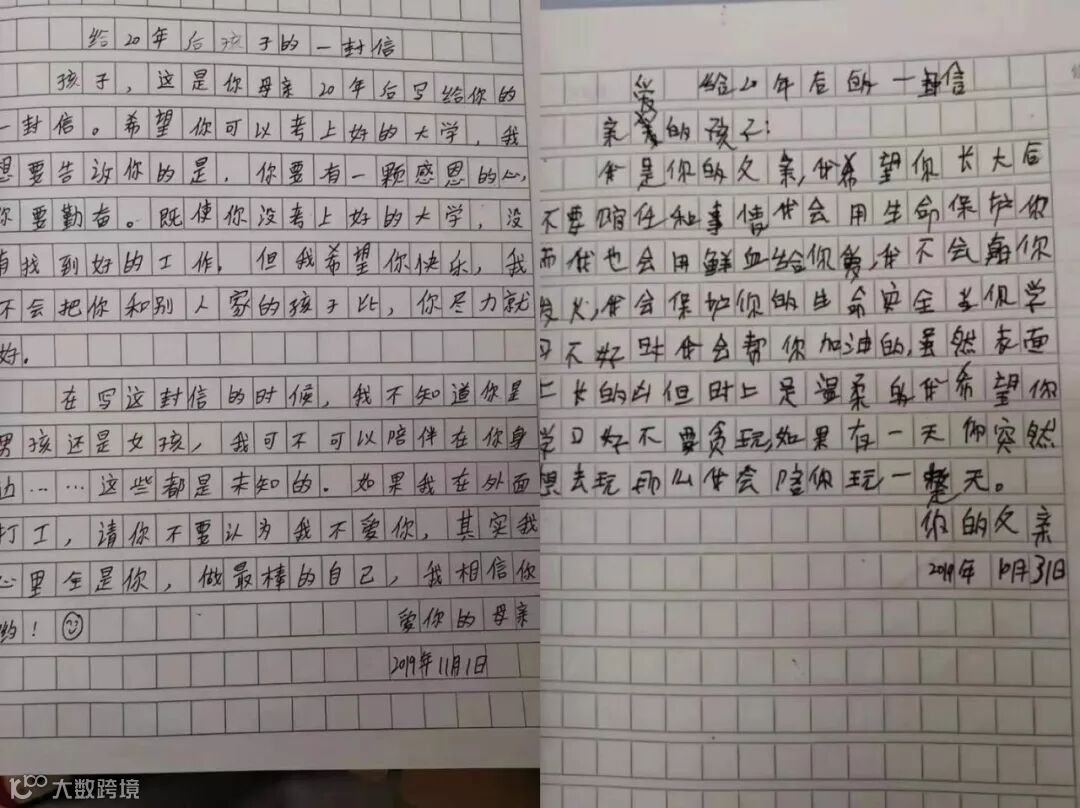 给20年后孩子的一封信
孩子，这是你母亲20年后写给你的
一封信。希望你可以考上好的大学，我
想要告诉你的是，你要有一颗感恩的心，
你要勤奋。既使你没考上好的大学，没
有找到好的工作，但我希望你快乐，我
不会把你和别人家的孩子比，你尽力就
好。
在写这封信的时候，我不知道你是
男孩还是女孩，我可不可以陪伴在你身
边……这些都是未知的。如果我在外面
打工，请你不要认为我不爱你，其实我
心里全是你，做最棒的自己，我相信你
哟！
爱你的母亲
2019年11月1日
给20年后的一封信
亲爱的孩子：
我是你的父亲，我希望你长大后
不要 任和事情我会用生命保护你
而我也会用鲜血给你爱，我不会 你
发火，我会保护你的生命安全当你学
习不好时我会帮你加油的，虽然表面
上长的凶但 上是温柔的我希望你
学习好不要贪玩，如果有一天你突然
想去玩那么我会陪你玩一整天。
你的父亲
2019年10月31日
大数跨境